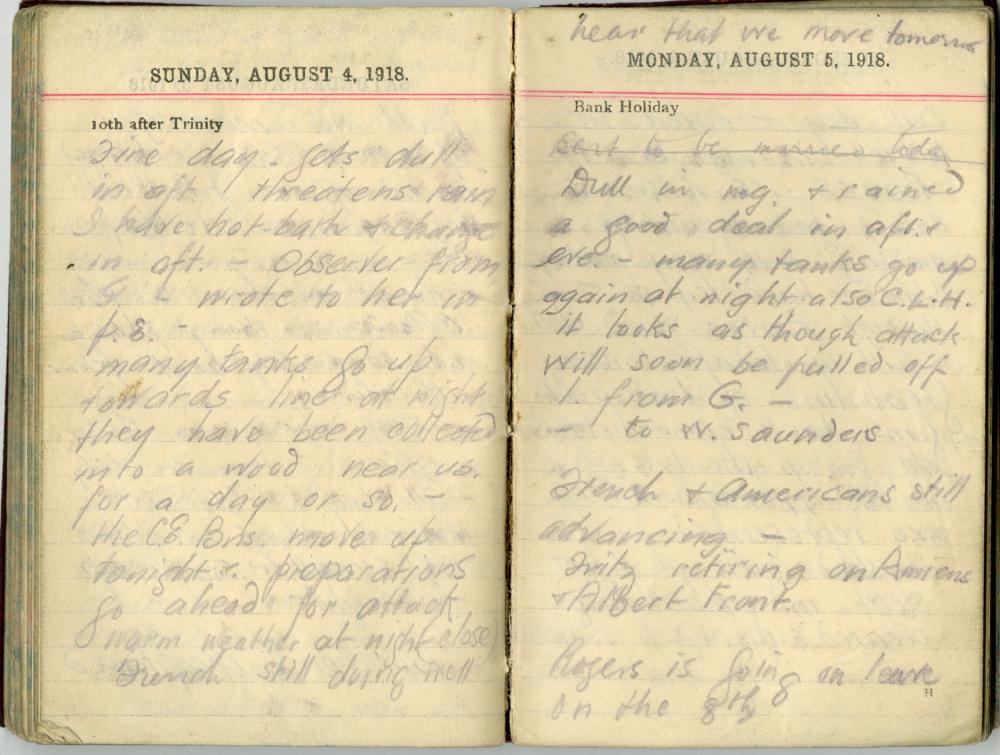 SUNDAY, AUGUST 4, 1918.
10th after Trinity
Fine day. gets dull
in aft threatens rain
I have hot bath & change
in aft. - Observer from
G - wrote to her in
p.s. -
many tanks go up
towards line at night
they have been collected
into a wood near us.
for a day or so. -
the C.E. Bns. move up
tonight & preparations
go ahead for attack,
warm weather at night (close)
French still doing well
hear that we move tomorrow
MONDAY, AUGUST 5, 1918.
Bank Holiday
to be married today
Dull in mg. & rained
a good deal in aft. &
eve. - many tanks go up
again at night also C.L.H.
it looks as though attack
will soon be pulled off
1. from G. -
- to W. Saunders
French & Americans still
advancing -
Fritz retiring on Amiens
& Albert Front.
Rogers is going on leave
on the 8th
H